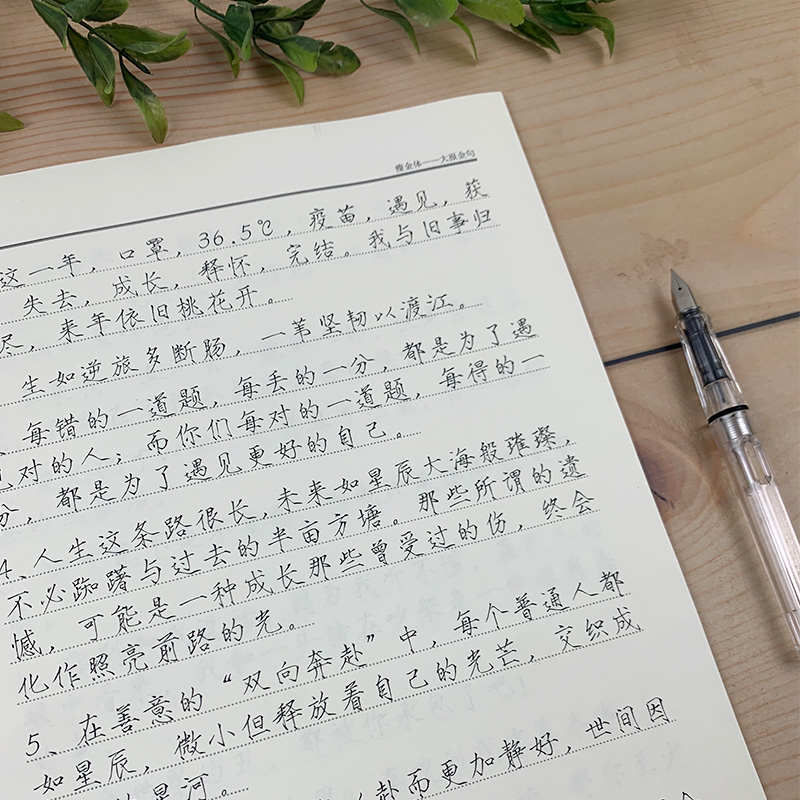 瘦金体——大雅金句
这一年，口罩，36.5℃，疫苗，遇见，获
失去，成长，释怀，完结。我与旧事归
尽，来年依旧桃花开。
生如逆旅多断肠，一苇坚韧以渡江。
、每错的一道题，每丢的一分，都是为了遇
见对的人；而你们每对的一道题，每得的一
分，都是为了遇见更好的自己。
4、人生这条路很长，未来如星辰大海般璀璨，
不必踟躇与过去的半亩方塘。那些所谓的遗
憾，可能是一种成长那些曾受过的伤，终会
化作照亮前路的光。
5、在善意的“双向奔赴”中，每个普通人都
如星辰，微小但释放着自己的光芒，交织成
星河。
赴而更加静好，世间因